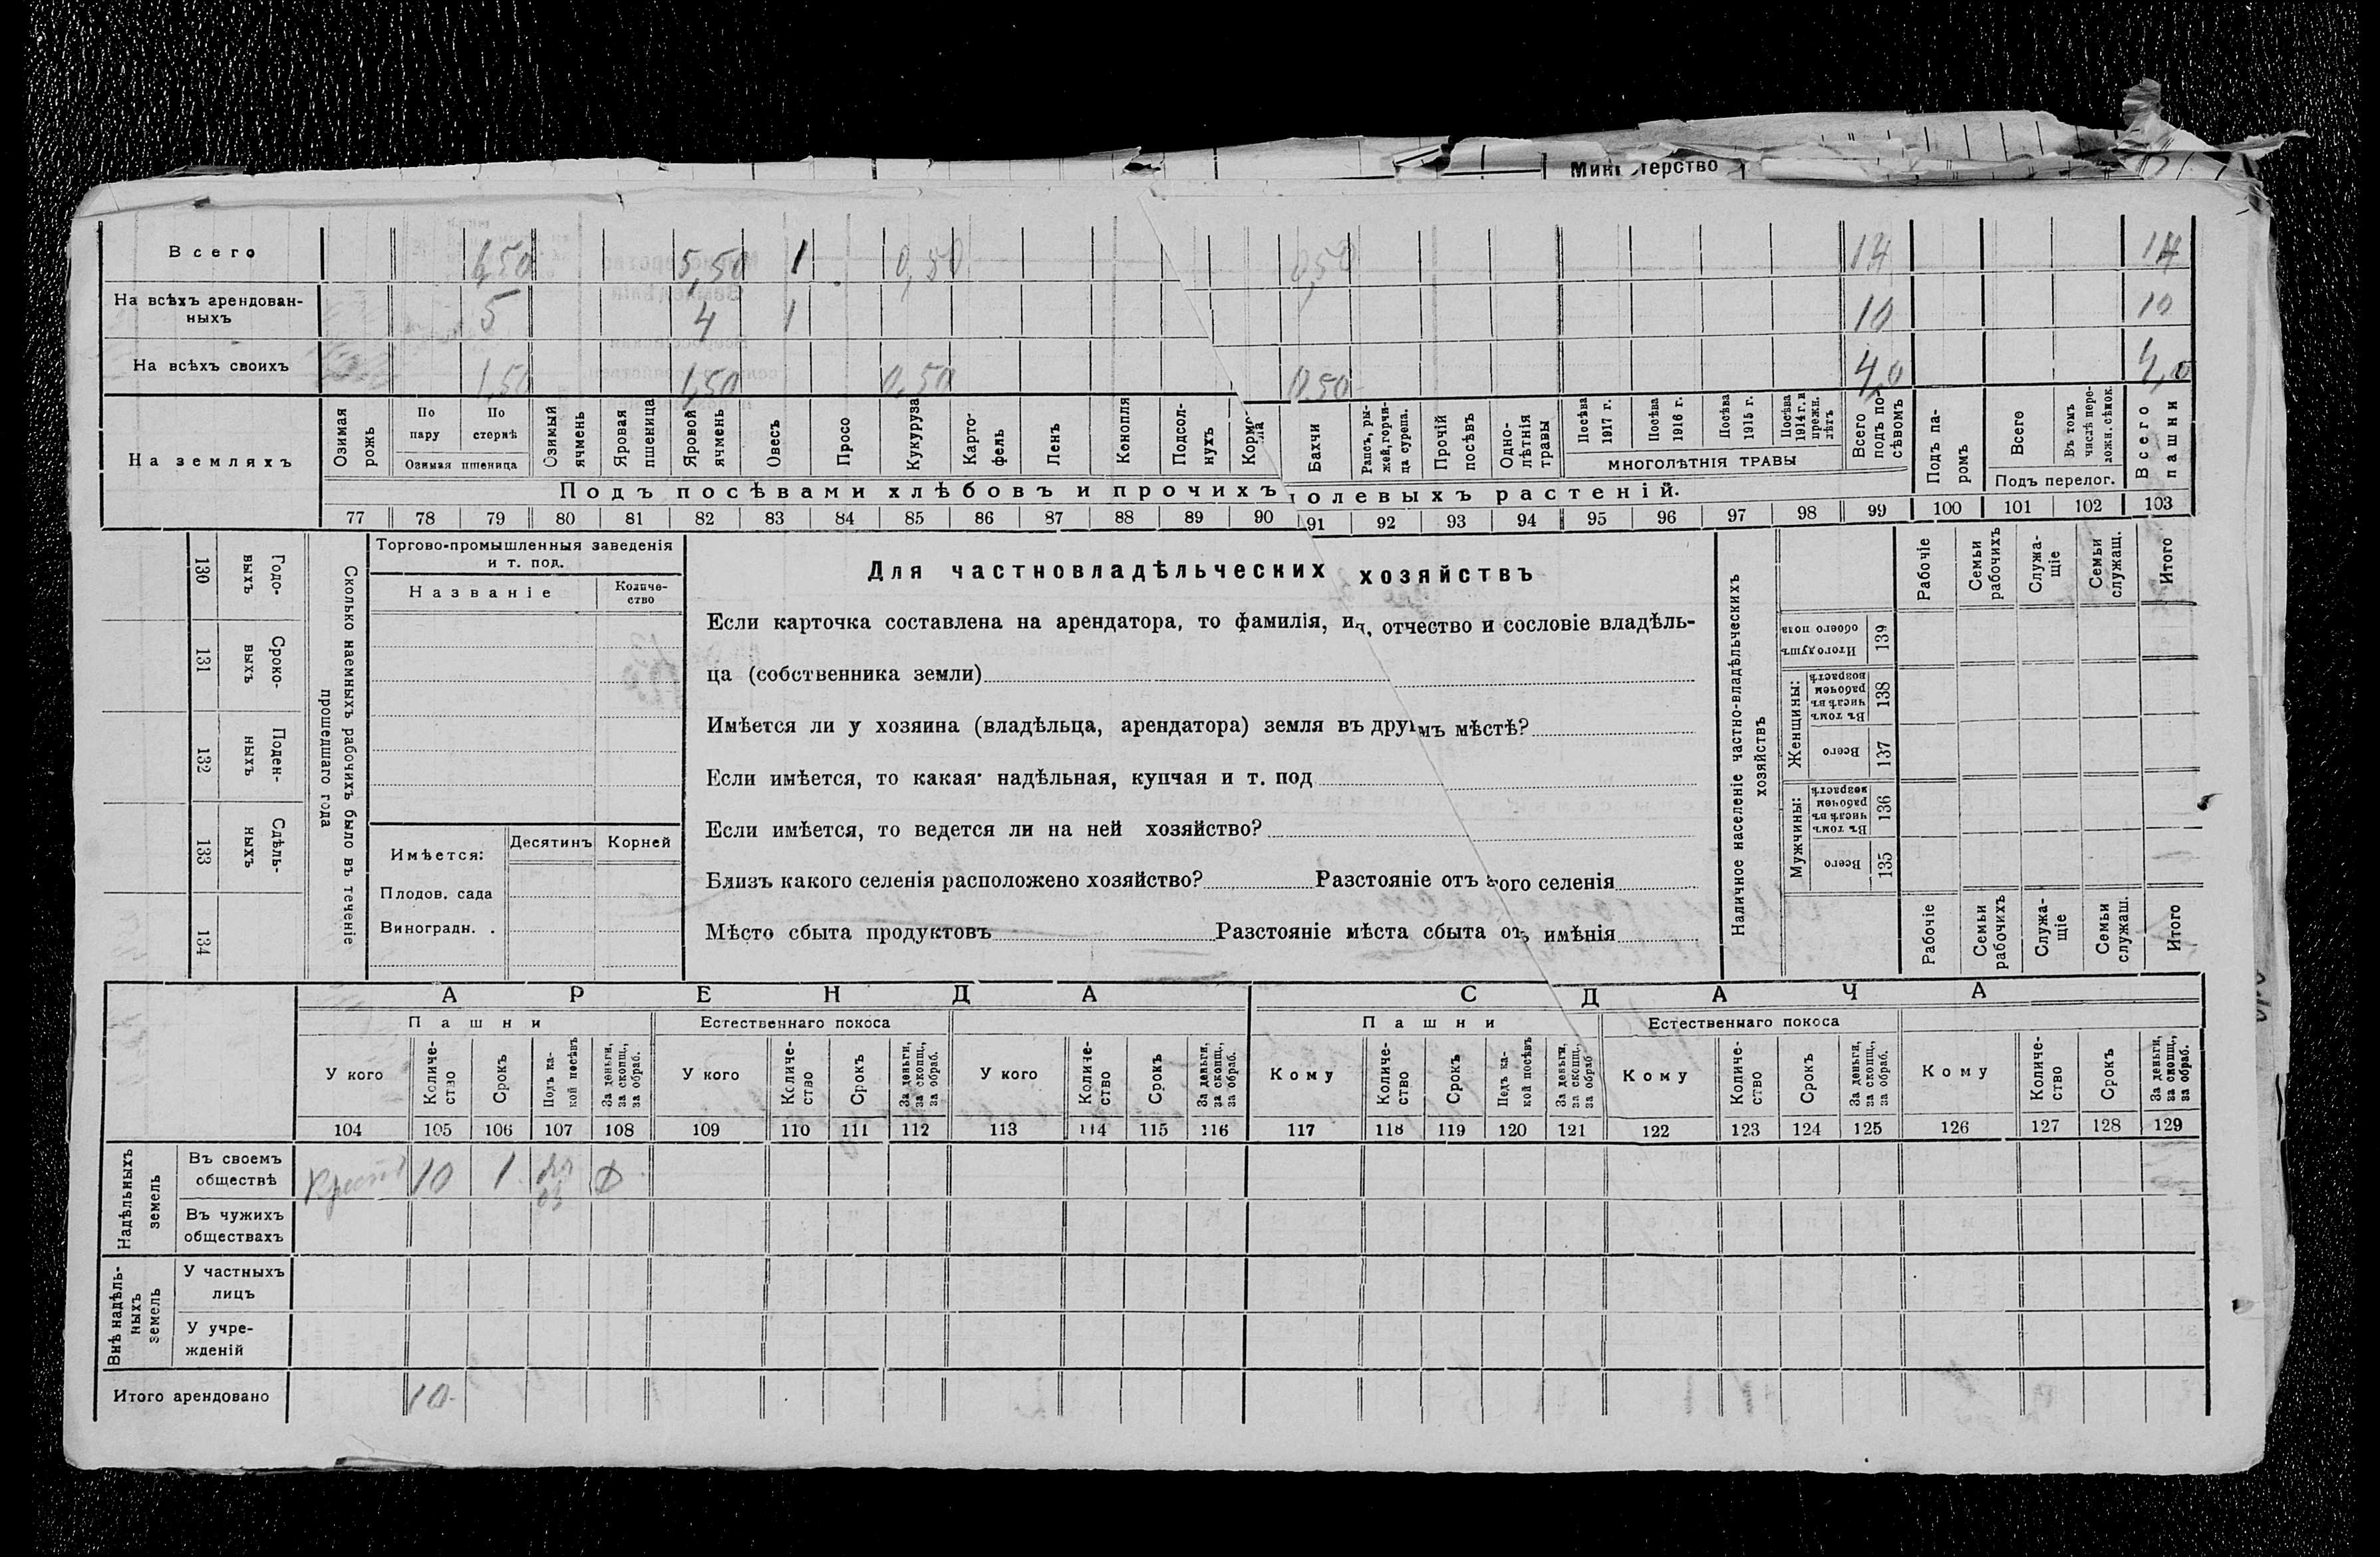 Министерство
Всего 6,50 5,50 1 0,50 0,50 14 14
На всѣхъ арендован-
ныхъ 5 4 1 10 10
На всѣхъ своихъ 1,50 1,50 0,50 0,50 4,0 4,0
На земляхъ
Озимая рожь
По пару
По стернѣ
Озимая пшеница
Озимый ячмень
Яровая пшеница
Яровой ячмень
Овесъ
Просо
Кукуруза
Карто-
фель
Ленъ
Конопля
Подсол-
нухъ
Бахчи
Рапсъ, ры-
жей, горчи-
ца сурепа.
Прочій посѣвъ
Одно-
лѣтнія
травы
Посѣва 1917 г.
Посѣва 1916 г.
Посѣва 1915 г.
Посѣва 1914 г. и прежн. лѣтъ
МНОГОЛѢТНІЯ ТРАВЫ
Всего подъ по-
сѣвомъ
Подъ па-
ромъ
Всего
Въ томъ числѣ пере-
ложн. сѣнок.
Подъ перелог.
Всего пашни
Подъ посѣвами хлѣбовъ и прочихъ полевыхъ растеній.
77 78 79 80 81 82 83 84 85 86 87 88 89 90 91 92 93 94 95 96 97 98 99 100 101 102 103
130 Годо-
выхъ
131 Сроко-
выхъ
132 Поден-
ныхъ
133 Сдѣль-
ныхъ
134
Сколько наемныхъ рабочихъ было въ теченіе
прошедшаго года
Торгово-промышленныя заведенія
и т. под.
Названіе
Количе-
ство
Имѣется: Десятинъ Корней
Плодов. сада
Виноградн. .
Для частновладѣльческихъ хозяйствъ
Если карточка составлена на арендатора, то фамилія, имя, отчество и сословіе владѣль-
ца (собственника земли)
Имѣется ли у хозяина (владѣльца, арендатора) земля въ другомъ мѣстѣ?
Если имѣется, то какая: надѣльная, купчая и т. под
Если имѣется, то ведется ли на ней хозяйство?
Близъ какого селенія расположено хозяйство? Разстояніе отъ этого селенія
Мѣсто сбыта продуктовъ Разстояніе мѣста сбыта отъ имѣнія
Наличное населеніе частно-владѣльческихъ
хозяйствъ
Рабочіе
Семьи рабочихъ
Служа-
щіе
Семьи служащ.
Итого
Итого душъ обоего пола 139
Женщины:
Въ томъ числѣ въ рабочем возрастѣ 138
Всего 137
Мужчины:
Въ томъ числѣ въ рабочем возрастѣ 136
Всего 135
Рабочіе
Семьи рабочихъ
Служа-
щіе
Семьи служащ.
Итого
АРЕНДА СДАЧА
Пашни Естественнаго покоса Пашни Естественнаго покоса
У кого
Количе-
ство
Срокъ
Подъ ка-
кой посѣвъ
За деньги,
за скопщ.,
за обраб.
У кого
Количе-
ство
Срокъ
За деньги,
за скопщ.,
за обраб.
У кого
Количе-
ство
Срокъ
За деньги,
за скопщ.,
за обраб.
Кому
Количе-
ство
Срокъ
Подъ ка-
кой посѣвъ
За деньги,
за скопщ.,
за обраб
Кому
Количе-
ство
Срокъ
За деньги,
за скопщ.,
за обраб.
Кому
Количе-
ство
Срокъ
За деньги,
за скопщ.,
за обраб.
104 105 106 107 108 109 110 111 112 113 114 115 116 117 118 119 120 121 122 123 124 125 126 127 128 129
Надѣльныхъ
земель
Въ своемъ
обществѣ 10 1
Въ чужихъ
обществахъ
Внѣ надѣль-
ныхъ
земель
У частныхъ
лицъ
У учре-
жденій
Итого арендовано 10